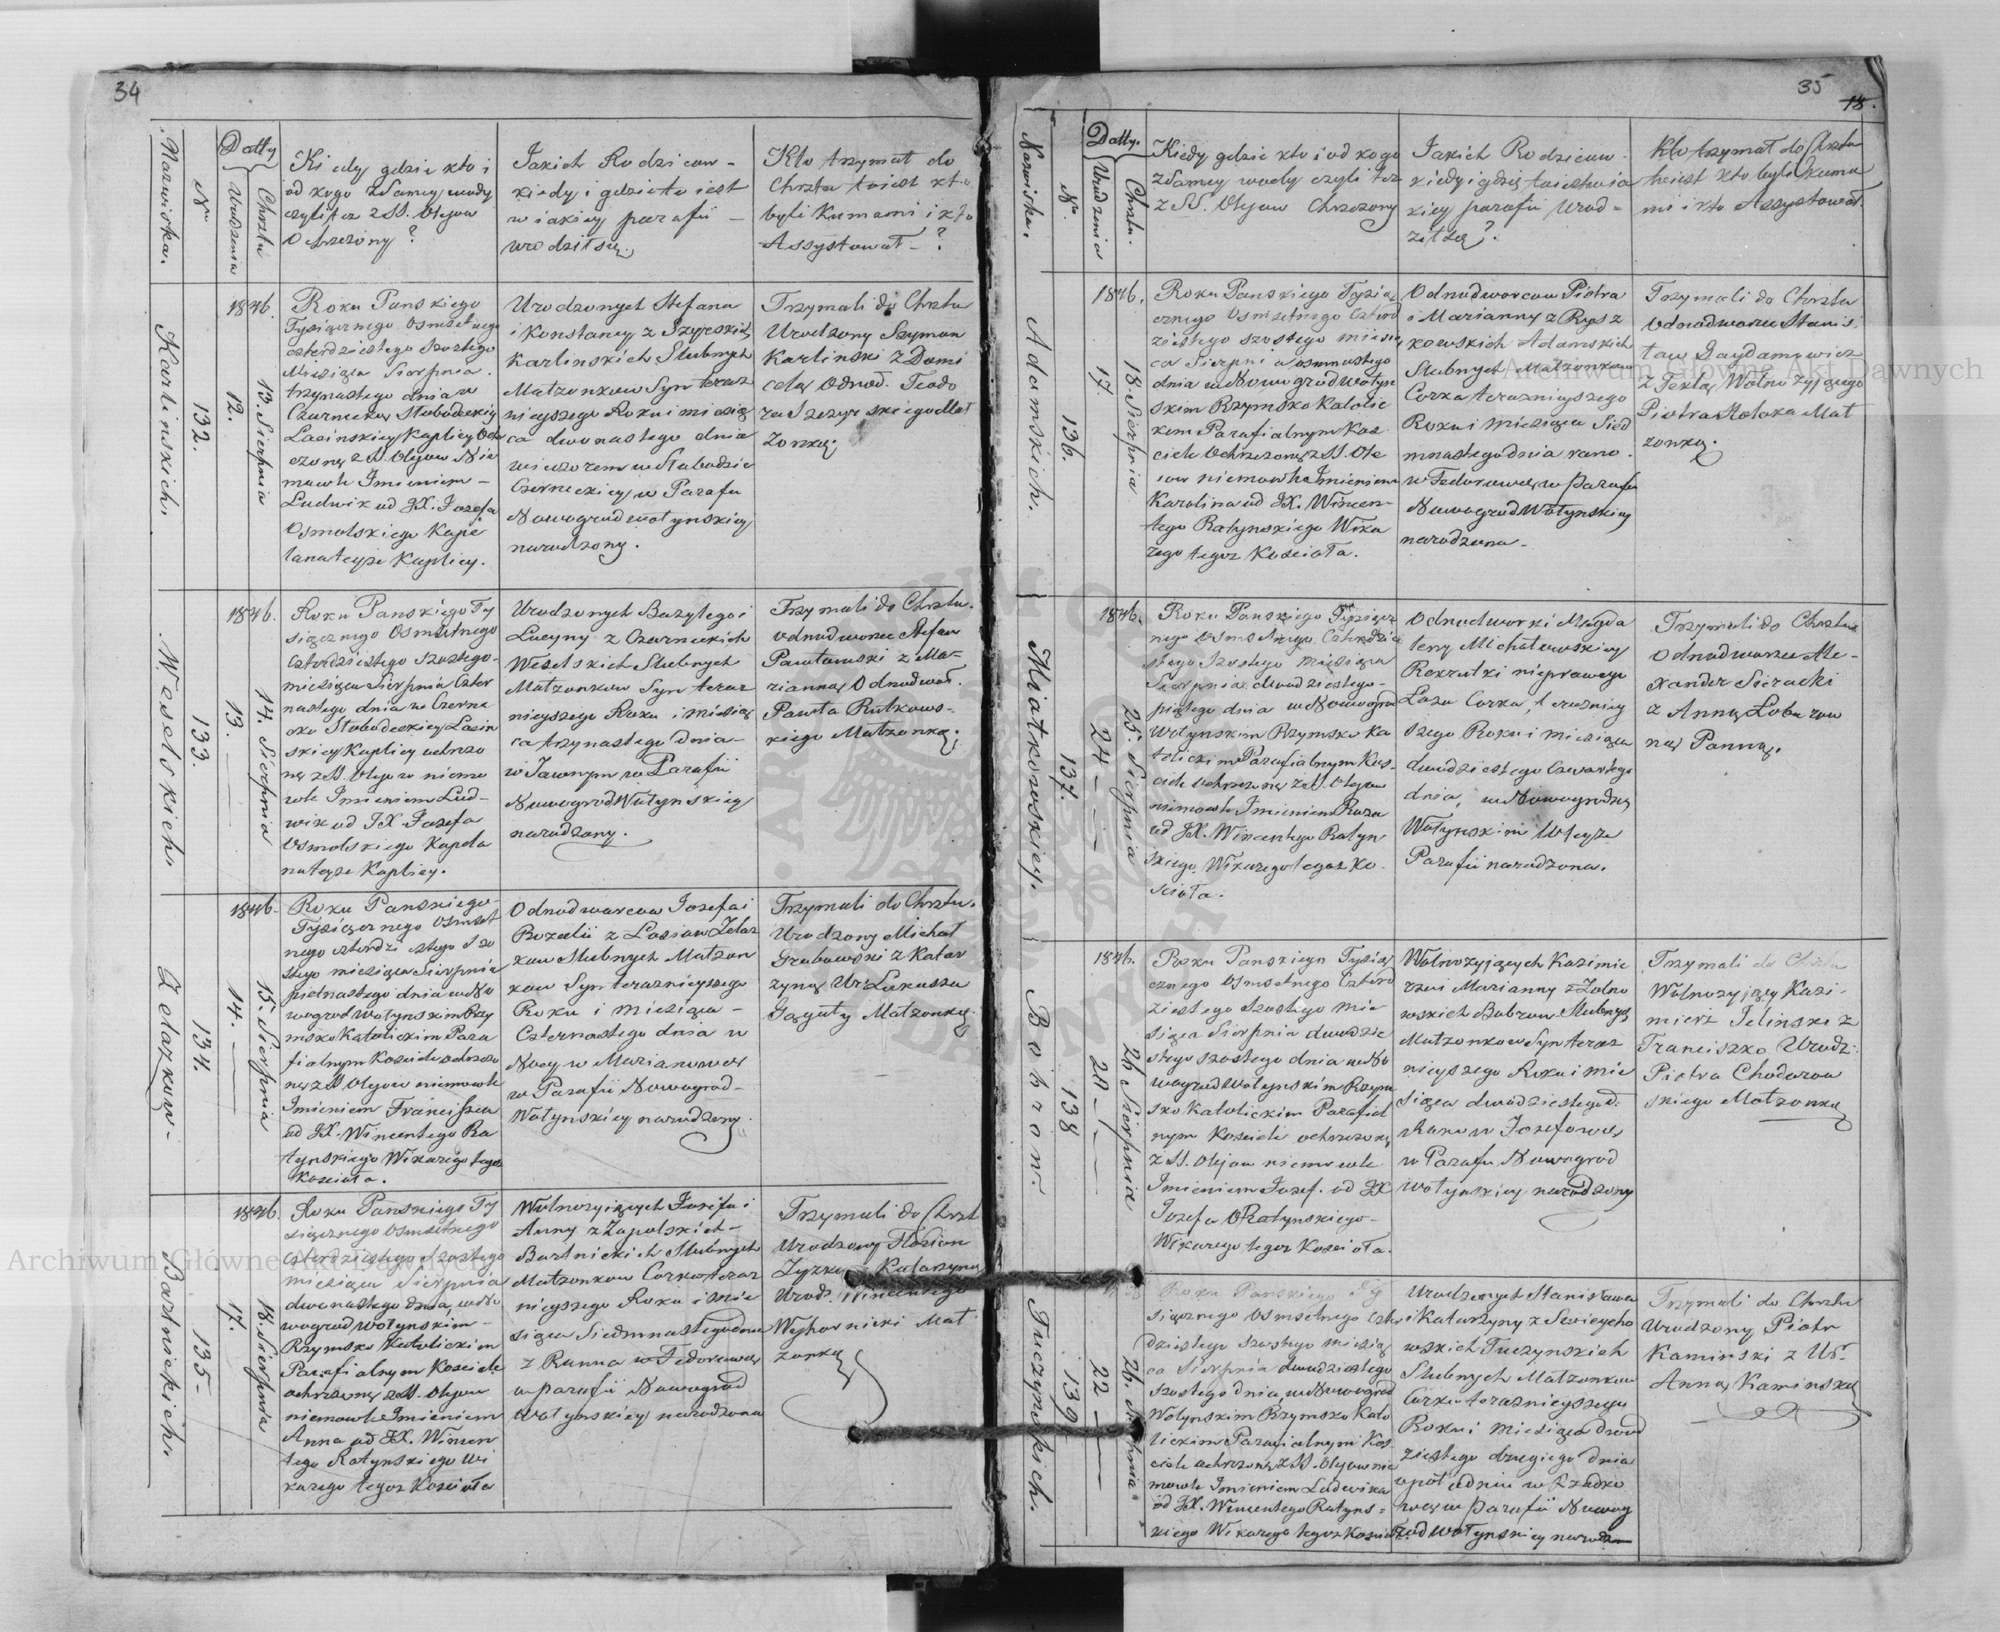 34
Nazwiska.
Nr
Datty
Urodzenia
Chrztu
Kiedy gdzie kto i
od kogo z Samey wody
czyli też z SS. Olejow
Ochrzczony?
Jakich Rodzicow -
kiedy i gdzie to iest
w iakiey parafii -
urodził się.
Kto trzymał do
Chrztu to iest kto
byli Kumami i kto
Assystował - ?
Karlinskich.
132.
1846.
12.
13. Sierpnia
Roku Panskiego
Tysiącznego Osmsetnego
czterdziestego szostego
Miesiąca Sierpnia
trzynastego dnia w
Czarneckiey Słobodzkiey
Lacinskiey Kaplicy Och
czony z SS. Olejow Nie
mowle Imieniem -
Ludwik od JX. Jozefa
Osmolskiego Kape
lana teyże Kaplicy.
Urodzonych Stefana
i Konstancyi z Szyrskich
Karlinskich Slubnych
Małzonkow Syn teraz
nieyszego Roku i miesią
ca dwonastego dnia
wieczorem w Słabodzie
Czerneckiey w Parafii
Nowogrodwołynskiey
narodzony.
Trzymali do Chrztu
Urodzony Szyman
Karlinski z Domi
celą Odnod. Teodo
ra Szczyrskiego Mał
żonką.
Weselskich.
133.
1846.
13.
14. Sierpnia
Roku Panskiego Ty
siącznego Osmsetnego
Czterdziestego szostego
miesiąca Sierpnia Czter
nastego dnia w Czerne
cko Słobodeckiey Lacin
skiey Kaplicy ochrzo
ny z SS. Olejow niemo
wle Imieniem Lud-
wik od JX. Jozefa
Osmolskiego Kapela
na teyże Kaplicy.
Urodzonych Bazylego i
Lucyny z Czarneckich
Weselskich Slubnych
Małzonkow Syn teraz
nieyszego Roku i miesią
ca trzynastego dnia -
w Jawnym w Parafii
Nowogrodwołynskiey
narodzony.
Trzymali do Chrztu.
Odnodworzec Stefan
Pawłowski z Ma-
rianną Odnodwor.
Pawła Rutkows-
kiego Małzonką.
Zelazkow -
134.
1846.
14.
15. Sierpnia
Roku Panskiego
Tysiącznego Osmset
nego czterdziestego szo
stego miesiąca Sierpnia
pietnastego dnia w No
wogrodwołynskim Rzy
msko Katolickim Para
fialnym Kosciele ochrzczo
ny z SS Olejow niemowle
Imieniem Franciszek
od JX. Wincentego Ra
tynskiego Wikarego tegoż
Kosciola.
Odnodworcow Jozefa i
Rozalii z Łosiow Zelaz
kow Slubnych Małzon
kow Syn terazniejszego
Roku i miesiąca -
Czternastego dnia w
Nocy w Marianowce
w Parafii Nowogrod-
Wołynskiey narodzony
Trzymali do Chrztu.
Urodzony Michał
Grabowski z Katar
zyną Ur. Łukasza
Małzonką.
Bartnickich.
135 -
1846.
17.
18. Sierpnia
Roku Panskiego Ty
siącznego Osmsetnego
Czterdziestego szostego
miesiąca Sierpnia
dwonastego dnia w No
wogrod wołynskim -
Rzymsko Katolickim
Parafialnym Kosciele
ochrzczony z SS. Olejow
niemowle Imieniem
Anna od JX. Wincen
tego Ratynskiego Wi
karego tegoż Kosciola
Wolnożyiących Jozefa i
Anny z Zapolskich -
Bartnickich Slubnych
Małzonkow Corka teraz
nieyszego Roku i mie
siąca Siedmnastego dnia
z Ranna w Fedorowce
w parafii Nowogrod
wołynskiey narodzona
Trzymali do Chrzt
Urodzony Florian
Katarzyną
Urod. Wincentego
Mał
zonką
35
18.
Nazwiska.
Nr
Datty.
Urodzenia
Chrztu.
Kiedy gdzie kto i od kogo
z Samey wody czyli też
z SS. Olejow Chrzczony
Jakich Rodzicow -
kiedy i gdzie to iest w ia
kiey parafii Urod -
ził się?.
Kto trzymał do Chrztu
to iest kto byli Kuma
mi i kto Assystował.
Adamskich.
136.
1846.
17.
18. Sierpnia
Roku Panskiego Tysią
cznego Osmsetnego Czterd
ziestego szostego miesią
ca Sierpnia osmnastego
dnia w Nowogrodwołyn
skim Rzymsko Katolic
kim Parafialnym Kos
ciele Ochrzczony z SS. Ole
iow niemowle Imieniem
Karolina od JX. Wincen-
tego Ratynskiego Wika
rego tegoz Kosciola.
Odnodworcow Piotra
i Marianny z Rysz
kowskich Adamskich
Slubnych Małzonkow
Corka terazniejszego
Roku i Miesiąca Sied
mnastego dnia rano.
w Fedorowce w Parafii
Nowogrodwołynskiey
narodzona -
Trzymali do Chrztu
Odnodworzec Stanis
ław Gaydamowicz
z Teklą Wolnożyjącego
Piotra Małż
zonką.
Miatkowskiey.
137.
1846.
24
25. Sierpnia
Roku Panskiego Tysiącz
nego Osmsetnego Czterdzie
stego szostego miesiąca
Sierpnia dwudziestego -
piątego dnia w Nowogrod
Wołynskim Rzymsko Ka
tolickim Parafialnym Kos
ciele ochrzczony z SS. Olejow
niemowle Imieniem Roza
od JX. Wincentego Ratyn
skiego Wikarego tegoz Ko
sciola.
Odnodworki Magda
leny Michałowskiey
Rekrutki nieprawego
Loza Corka, terazniey
szego Roku i miesiąca
dwudziestego Czwartego
dnia, w Nowogrodzie
Wołynskim w teyze
Parafii narodzona.
Trzymali do Chrztu
Odnodworzec Ale-
xander Sieracki
z Anną Łobarzow
ną Panną.
Bobrow.
138
1846.
20
26 Sierpnia
Roku Panskiego Tysią
cznego Osmsetnego Czterd
ziestego szostego mie
siąca Sierpnia dwudzie
stego szostego dnia w No
wogrodwołynskim Rzym
sko Katolickim Parafial
nym Kosciele ochrzczony
z SS. Olejow niemowle
Imieniem Jozef. od JX
Jozefa Ratynskiego -
Wikarego tegoz Kosciola.
Wolnożyjących Kazimie
rza i Marianny z Zolno
woskich Bobrow Slubnych
Małzonkow Syn teraz
nieyszego Roku i mie
siąca dwudziestego d.
z Rana w Jozefowce
w Parafii Nowogrod
wołynskiey narodzony
Trzymali do Chrztu
Wolnożyjący Kazi-
mierz Jelinski z
Franciszko Urodz:
Piotra Chodorow
skiego Małzonką
Tuczynskich.
139
22
26. Sierpnia
Roku Panskiego Ty
siącznego Osmsetnego Czter
dziestego szostego miesią
ca Sierpnia dwudziestego
szostego dnia w Nowogrod
Wołynskim Rzymsko Kato
lickim Parafialnym Kos
ciele ochrzczony z SS. Olejow nie
mowle Imieniem Ludwika
od JX. Wincentego Ratyns -
kiego Wikarego tegoz Kosciola
Urodzonych Stanisława
i Katarzyny z Swiecho
wskich Tuczynskich
Slubnych Małzonkow
Corka terazniejszego
Roku i Miesiąca dwod
ziestego drugiego dnia
w południu w Rzadko
wce w Parafii Nowog
rodwołynskiey narodzona
Trzymali do Chrztu
Urodzony Piotr
Kaminski z Ur.
Anną Kaminską
Archiwum Główne Akt Dawnych
Archiwum Główne Akt Dawnych